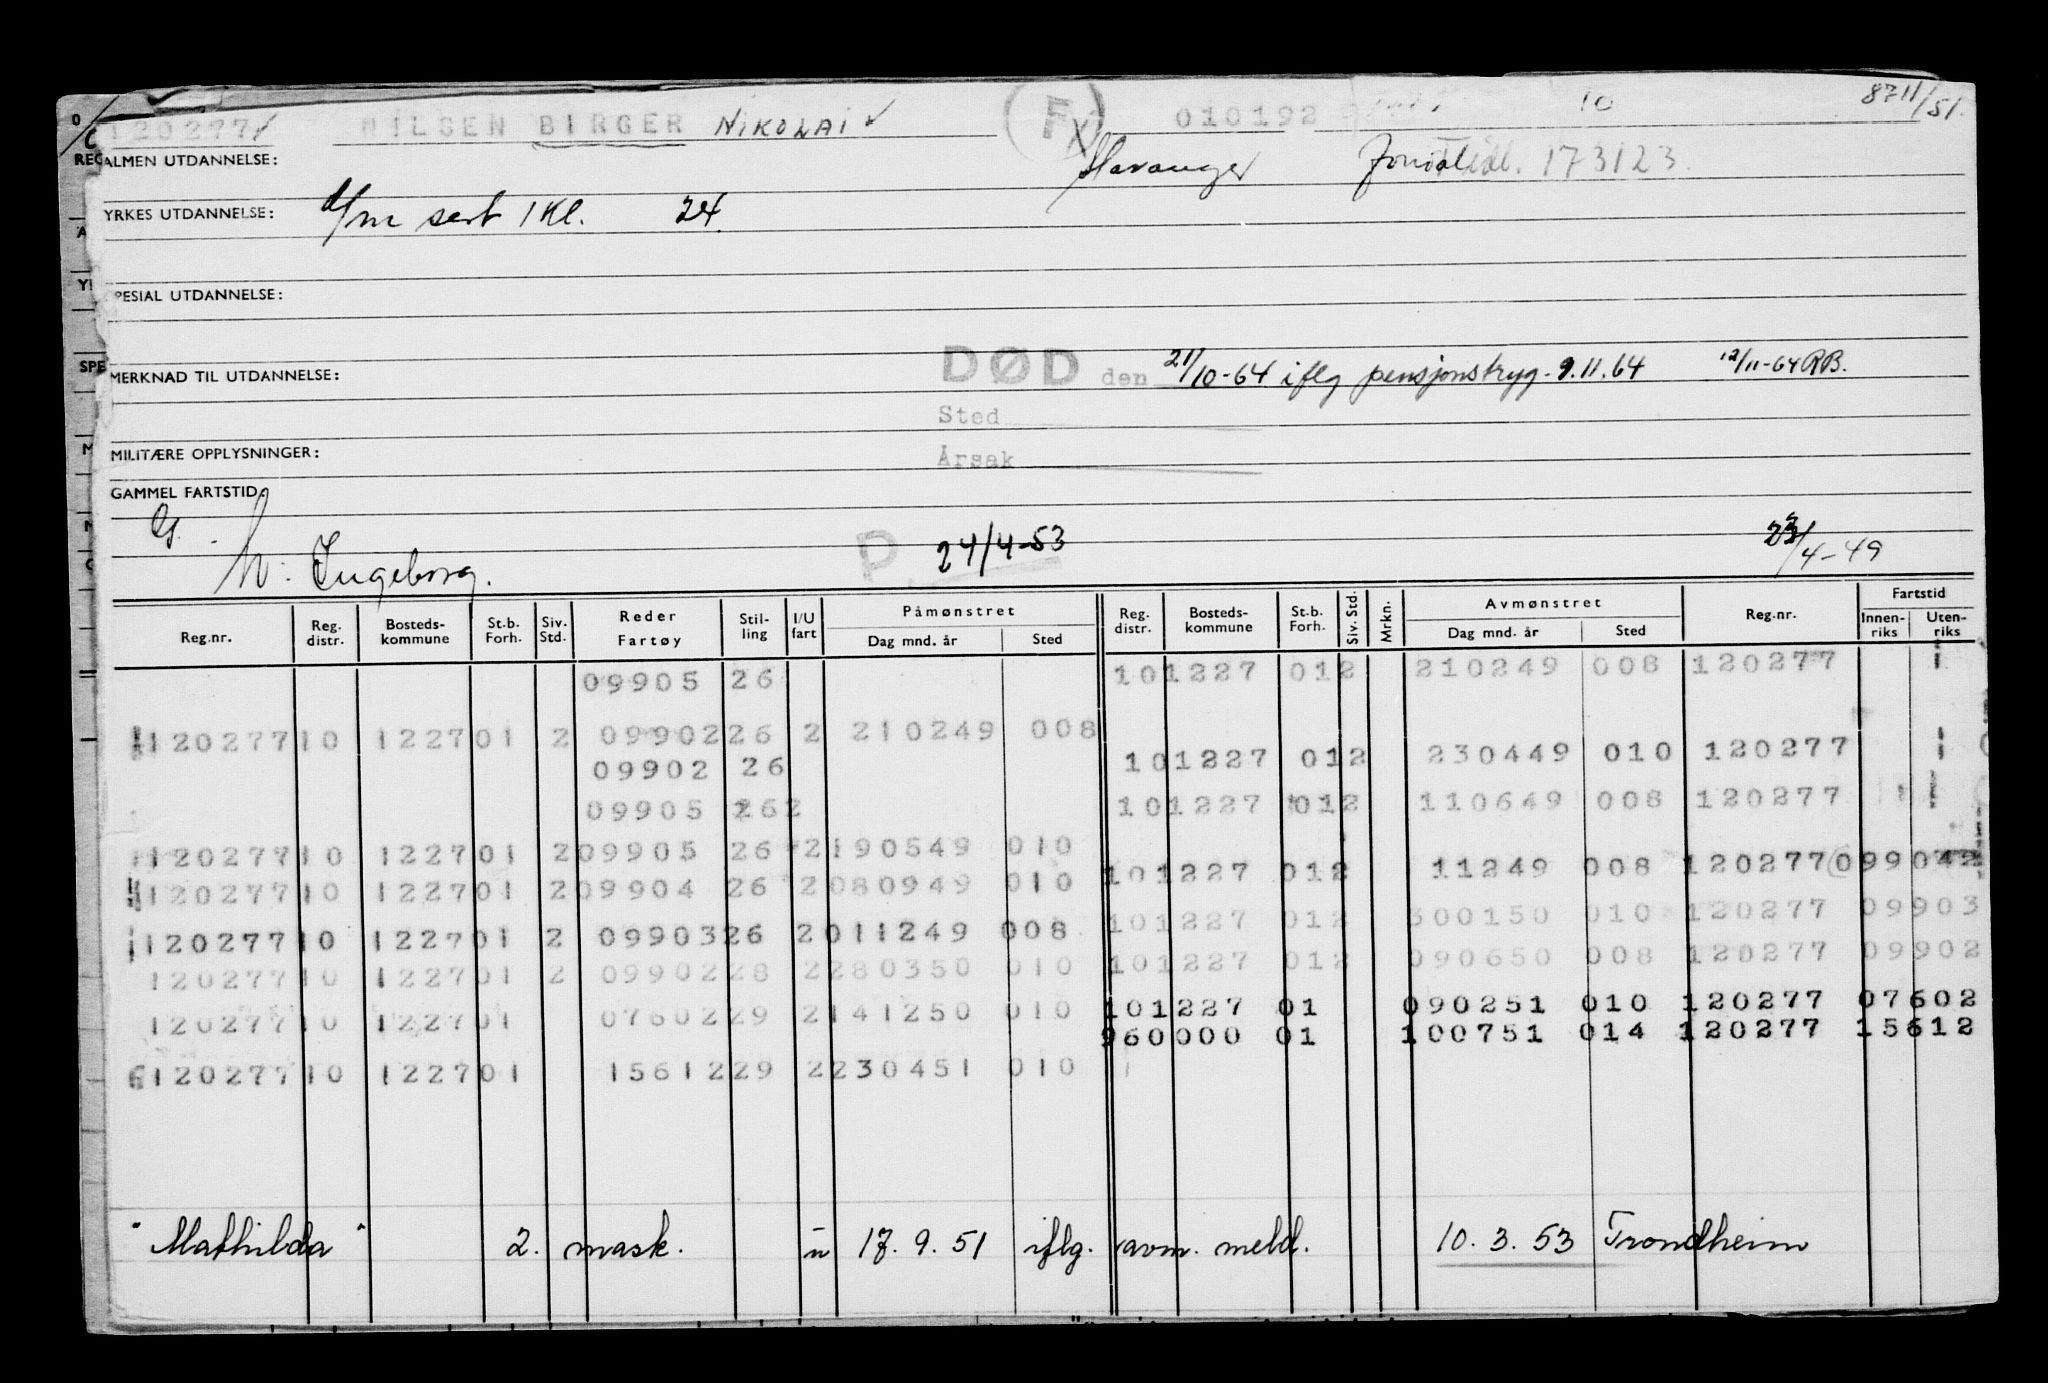 120277 NILSEN BIRGER NIKOLAI F 010192 10 8711/51.
ALMEN UTDANNELSE: Stavanger 173123
YRKES UTDANNELSE: sert 1 Kl. 24.
SPESIAL UTDANNELSE:
MERKNAD TIL UTDANNELSE: DØD den 21/10-64 iflg pensjonstryg. 9.11.64 12/11-64 RB.
Sted
MILITÆRE OPPLYSNINGER: Årsak
GAMMEL FARTSTID:
G. P. 24/4-53 23/4-49
h: Ingeborg.
Reg.nr. Reg. distr. Bosteds-kommune St.b. Forh. Siv. Std. Reder Fartøy Stil-ling I/U fart Påmønstret Dag mnd. år Sted Reg. distr. Bosteds-kommune St.b. Forh. Siv. Std. Mrkn. Avmønstret Dag mnd. år Sted Reg.nr. Fartstid Innen-riks Uten-riks
09905 26 101227 012 210249 008 120277
120277 10 1227 01 2 09902 26 2 210249 008
09902 26 101227 012 230449 010 120277
09905 262 101227 012 110649 008 120277
120277 10 1227 01 2 09905 26 2 190549 010
101227 012 11249 008 120277 099042
120277 10 1227 01 2 09904 26 2 080949 010
101227 012 300150 010 120277 09903
120277 10 1227 01 2 09903 26 2 011249 008
101227 012 090650 008 120277 09902
120277 10 1227 01 2 09902 28 2 280350 010
101227 01 090251 010 120277 07602
120277 10 1227 01 07602 29 2 141250 010
960000 01 100751 014 120277 15612
120277 10 1227 01 15612 29 2 230451 010
"Mathilda" 2. mask. u 17.9.51 iflg. avm. meld. 10.3.53 Trondheim